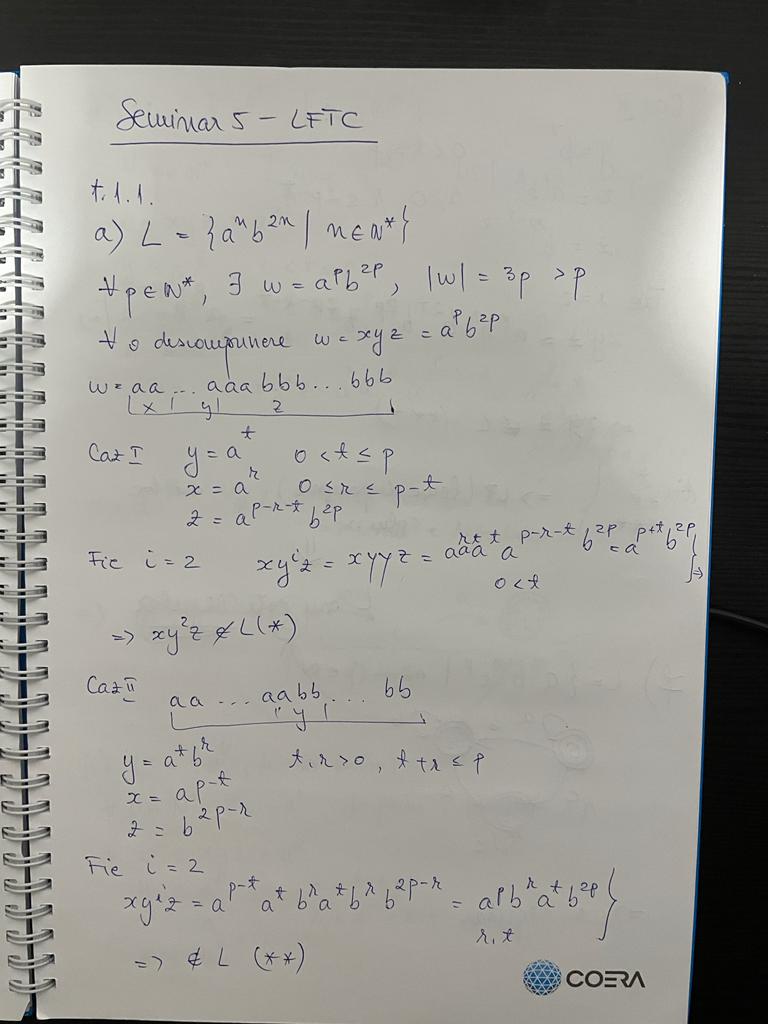 Seminar 5 - LFTC
t.1.1.
a) L = {aⁿb²ⁿ | n∈N*}
∀ p∈N*, ∃ w = aᵖb²ᵖ, |w| = 3p > p
∀ o descompunere w = xyz = aᵖb²ᵖ
w = aa ... aaabbb...bbb
x y z
Caz I y = aᵗ 0 < t ≤ p
x = aʳ 0 ≤ r ≤ p-t
z = a^{p-r-t} b^{2p}
Fie i = 2 xyⁱz = xyyz = aʳaᵗaᵗ a^{p-r-t} b^{2p} = a^{p+t} b^{2p} } ⇒
0 < t
=> xy²z ∉ L (*)
Caz II aa ... aabb ... bb
y
y = aᵗbʳ t, r > 0, t+r ≤ p
x = a^{p-t}
z = b^{2p-r}
Fie i = 2
xyⁱz = a^{p-t} aᵗ bʳ aᵗ bʳ b^{2p-r} = aᵖbʳaᵗb²ᵖ }
r, t
=> ∉ L (**)
COERA